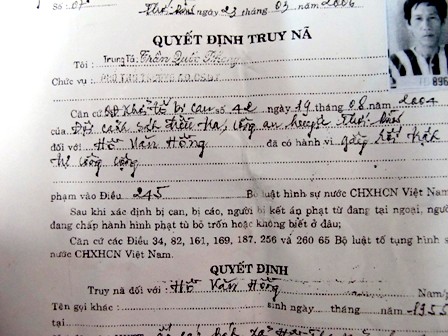 Số: 07 Thới Bình ngày 23 tháng 03 năm 2006
QUYẾT ĐỊNH TRUY NÃ
Tôi : Trung Tá: Trần Quốc
Chức vụ :
Căn cứ QĐ Khởi tố bị can số 42 ngày 19 tháng 08 năm 2004
của Đội cảnh sát điều tra, công an huyện Thới Bình
đối với Hồ Văn Hồng đã có hành vi gây rối trật
tự công cộng
phạm vào Điều 245 Bộ luật hình sự nước CHXHCN Việt Nam
Sau khi xác định bị can, bị cáo, người bị kết án phạt từ đang tại ngoại, người
đang chấp hành hình phạt tù bỏ trốn hoặc không biết ở đâu;
Căn cứ các Điều 34, 82, 161, 169, 187, 256 và 260 65 Bộ luật tố tụng hình sự
nước CHXHCN Việt Nam.
QUYẾT ĐỊNH
Truy nã đối với : Hồ Văn Hồng
Tên gọi khác : sinh ngày tháng năm
tại